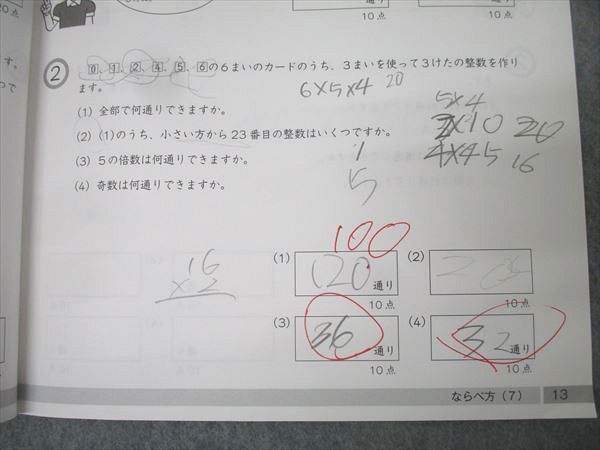 20点
10点
② 0、1、2、4、5、6の6まいのカードのうち、3まいを使って3けたの整数を作り
ます。
6×5×4 20
(1) 全部で何通りできますか。
5×4
(2) (1)のうち、小さい方から23番目の整数はいくつですか。
×10 20
(3) 5の倍数は何通りできますか。
1
4×45 16
(4) 奇数は何通りできますか。
5
100
16
×2
(1) 120 通り (2)
10点 10点
(3) 36 通り (4) 32 通り
10点 10点
ならべ方(7) 13